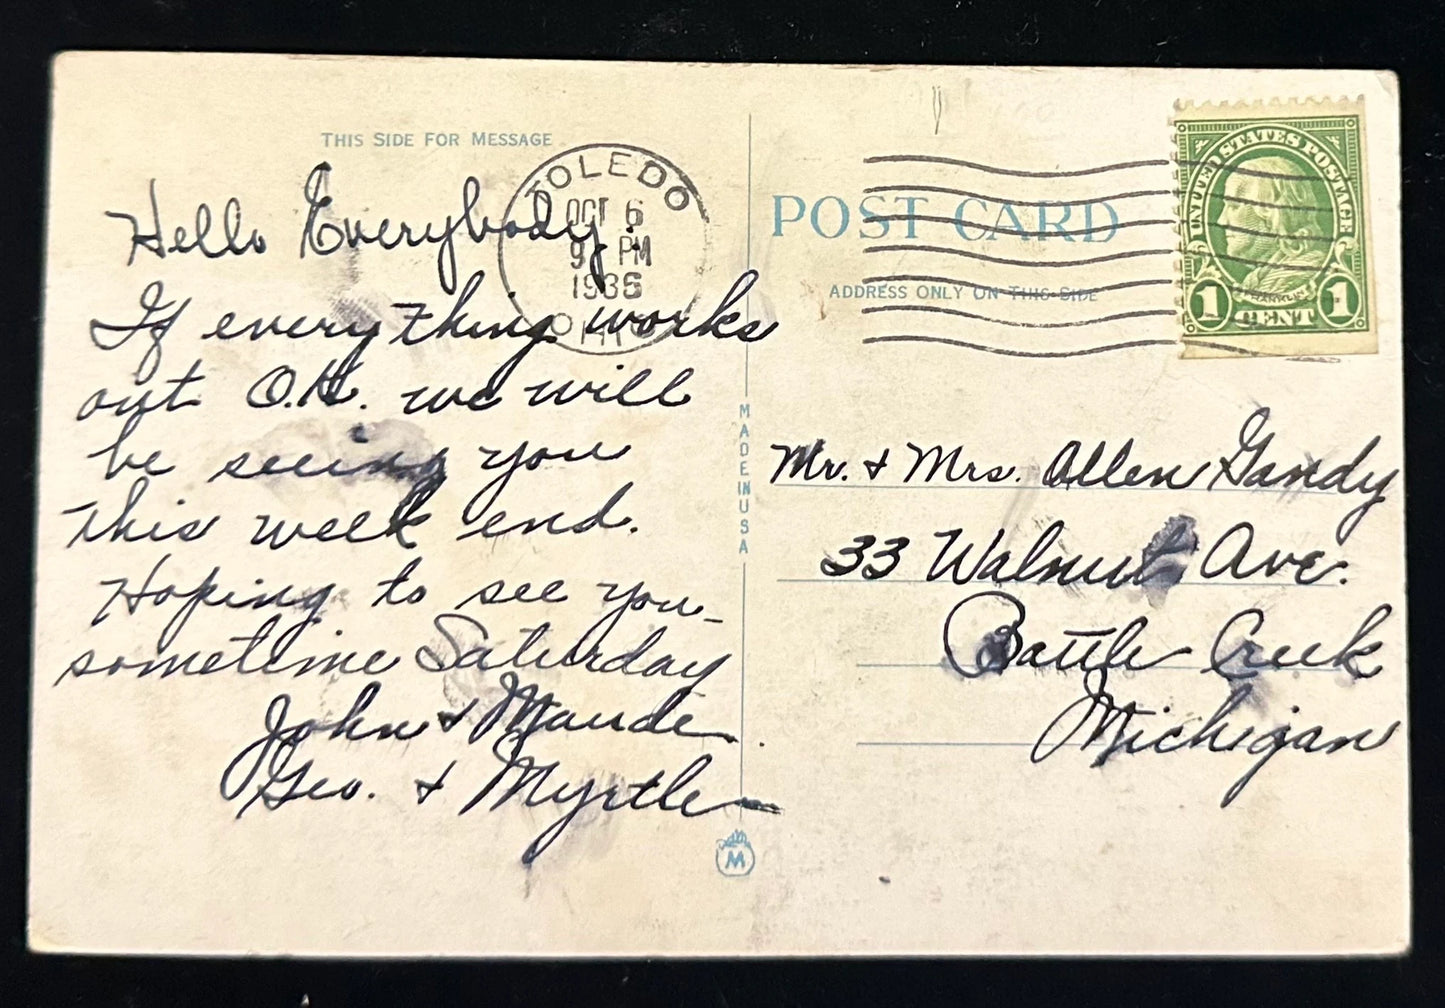 THIS SIDE FOR MESSAGE
TOLEDO
OCT 6
9 PM
1936
OHIO
Hello Everybody:
If everything works
out O.K. we will
be seeing you
this week end.
Hoping to see you
sometime Saturday
John & Maude.
Geo. & Myrtle
MADE IN USA
M
POST CARD
ADDRESS ONLY ON THIS SIDE
UNITED STATES POSTAGE
FRANKLIN
1 CENT 1
Mr. & Mrs. Allen Gandy
33 Walnut Ave.
Battle Creek
Michigan